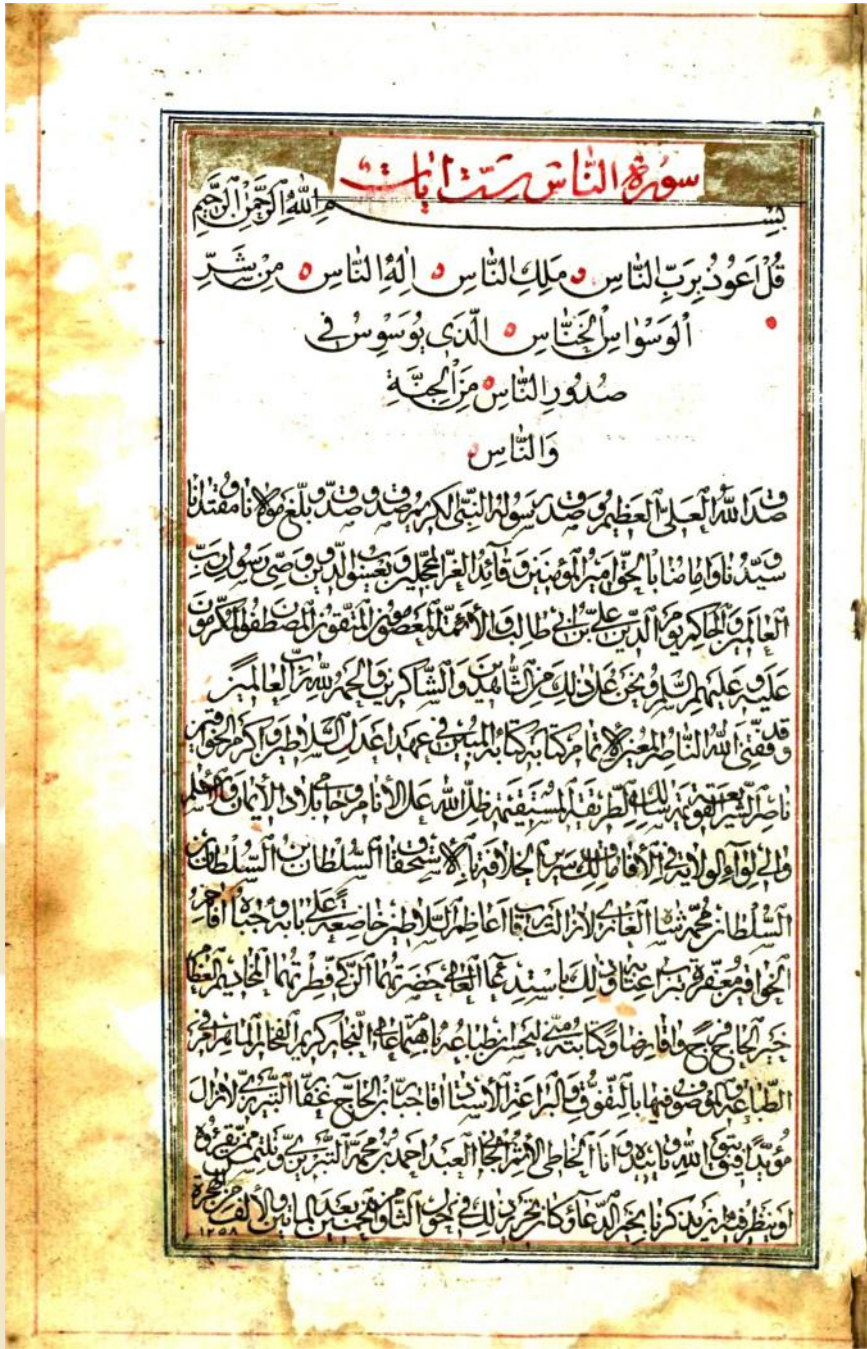 سورة الناس ست ايات
بسم الله الرحمن الرحيم
قُلْ اَعُوذُ بِرَبِّ النَّاسِ مَلِكِ النَّاسِ اِلٰهِ النَّاسِ مِنْ شَرِّ
اَلْوَسْوَاسِ الْخَنَّاسِ الَّذِي يُوَسْوِسُ فِي
صُدُورِ النَّاسِ مِنَ الْجِنَّةِ
وَالنَّاسِ
صدق الله العلي العظيم وصدق رسوله النبي الكريم وصدق بلغ مولانا ومقتدانا
وسيدنا وامامنا بالحق امير المؤمنين وقائد الغر المحجلين ويعسوب الدين وصي رسول رب
العالمين والحاكم يوم الدين علي بن ابي طالب والائمة المعصومون المتقون المصطفون المكرمون
عليه وعليهم السلم ونحن على ذلك من الشاهدين والشاكرين والحمد لله رب العالمين
وقد وفقني الله الناصر المعين لاتمام كتابة كتابه المبين في عهد اعدل السلاطين واكرم الخواقين
ناصر الشريعة القويمة سالك الطريقة المستقيمة ظل الله على الانام وحامي بلاد الايمان والاسلم
والي لواء الولاية في الافاق مالك سرير الخلافة بالاستحقاق السلطان بن السلطان بن
السلطان محمد شاه الغازي لا زال اعاظم السلاطين خاضعة على بابه وجباه افاخم
الخواقين معفرة بتراب وذلك باستدعاء العالي حضرتهما الزكي فطرتهما المخاديم العظام
خير الحاج اقا رضا وكتابته مني باهتمام التجار كريم الماهر في فن
الطباعة والموصوف فيها بالتفوق والبراعة الاستاد اقا بن الحاج التبريزي لا زال
مؤيدا بتوفيق الله وتاييده وانا الخاطي الجاني العبد احمد بن محمد التبريزي ونلتمس ممن يقرؤه
او ينظر فيه ان يذكرنا بخير الدعاء وكان تحرير ذلك في الثامن والخمسين بعد المأتين والالف من الهجرة
١٢٥٨